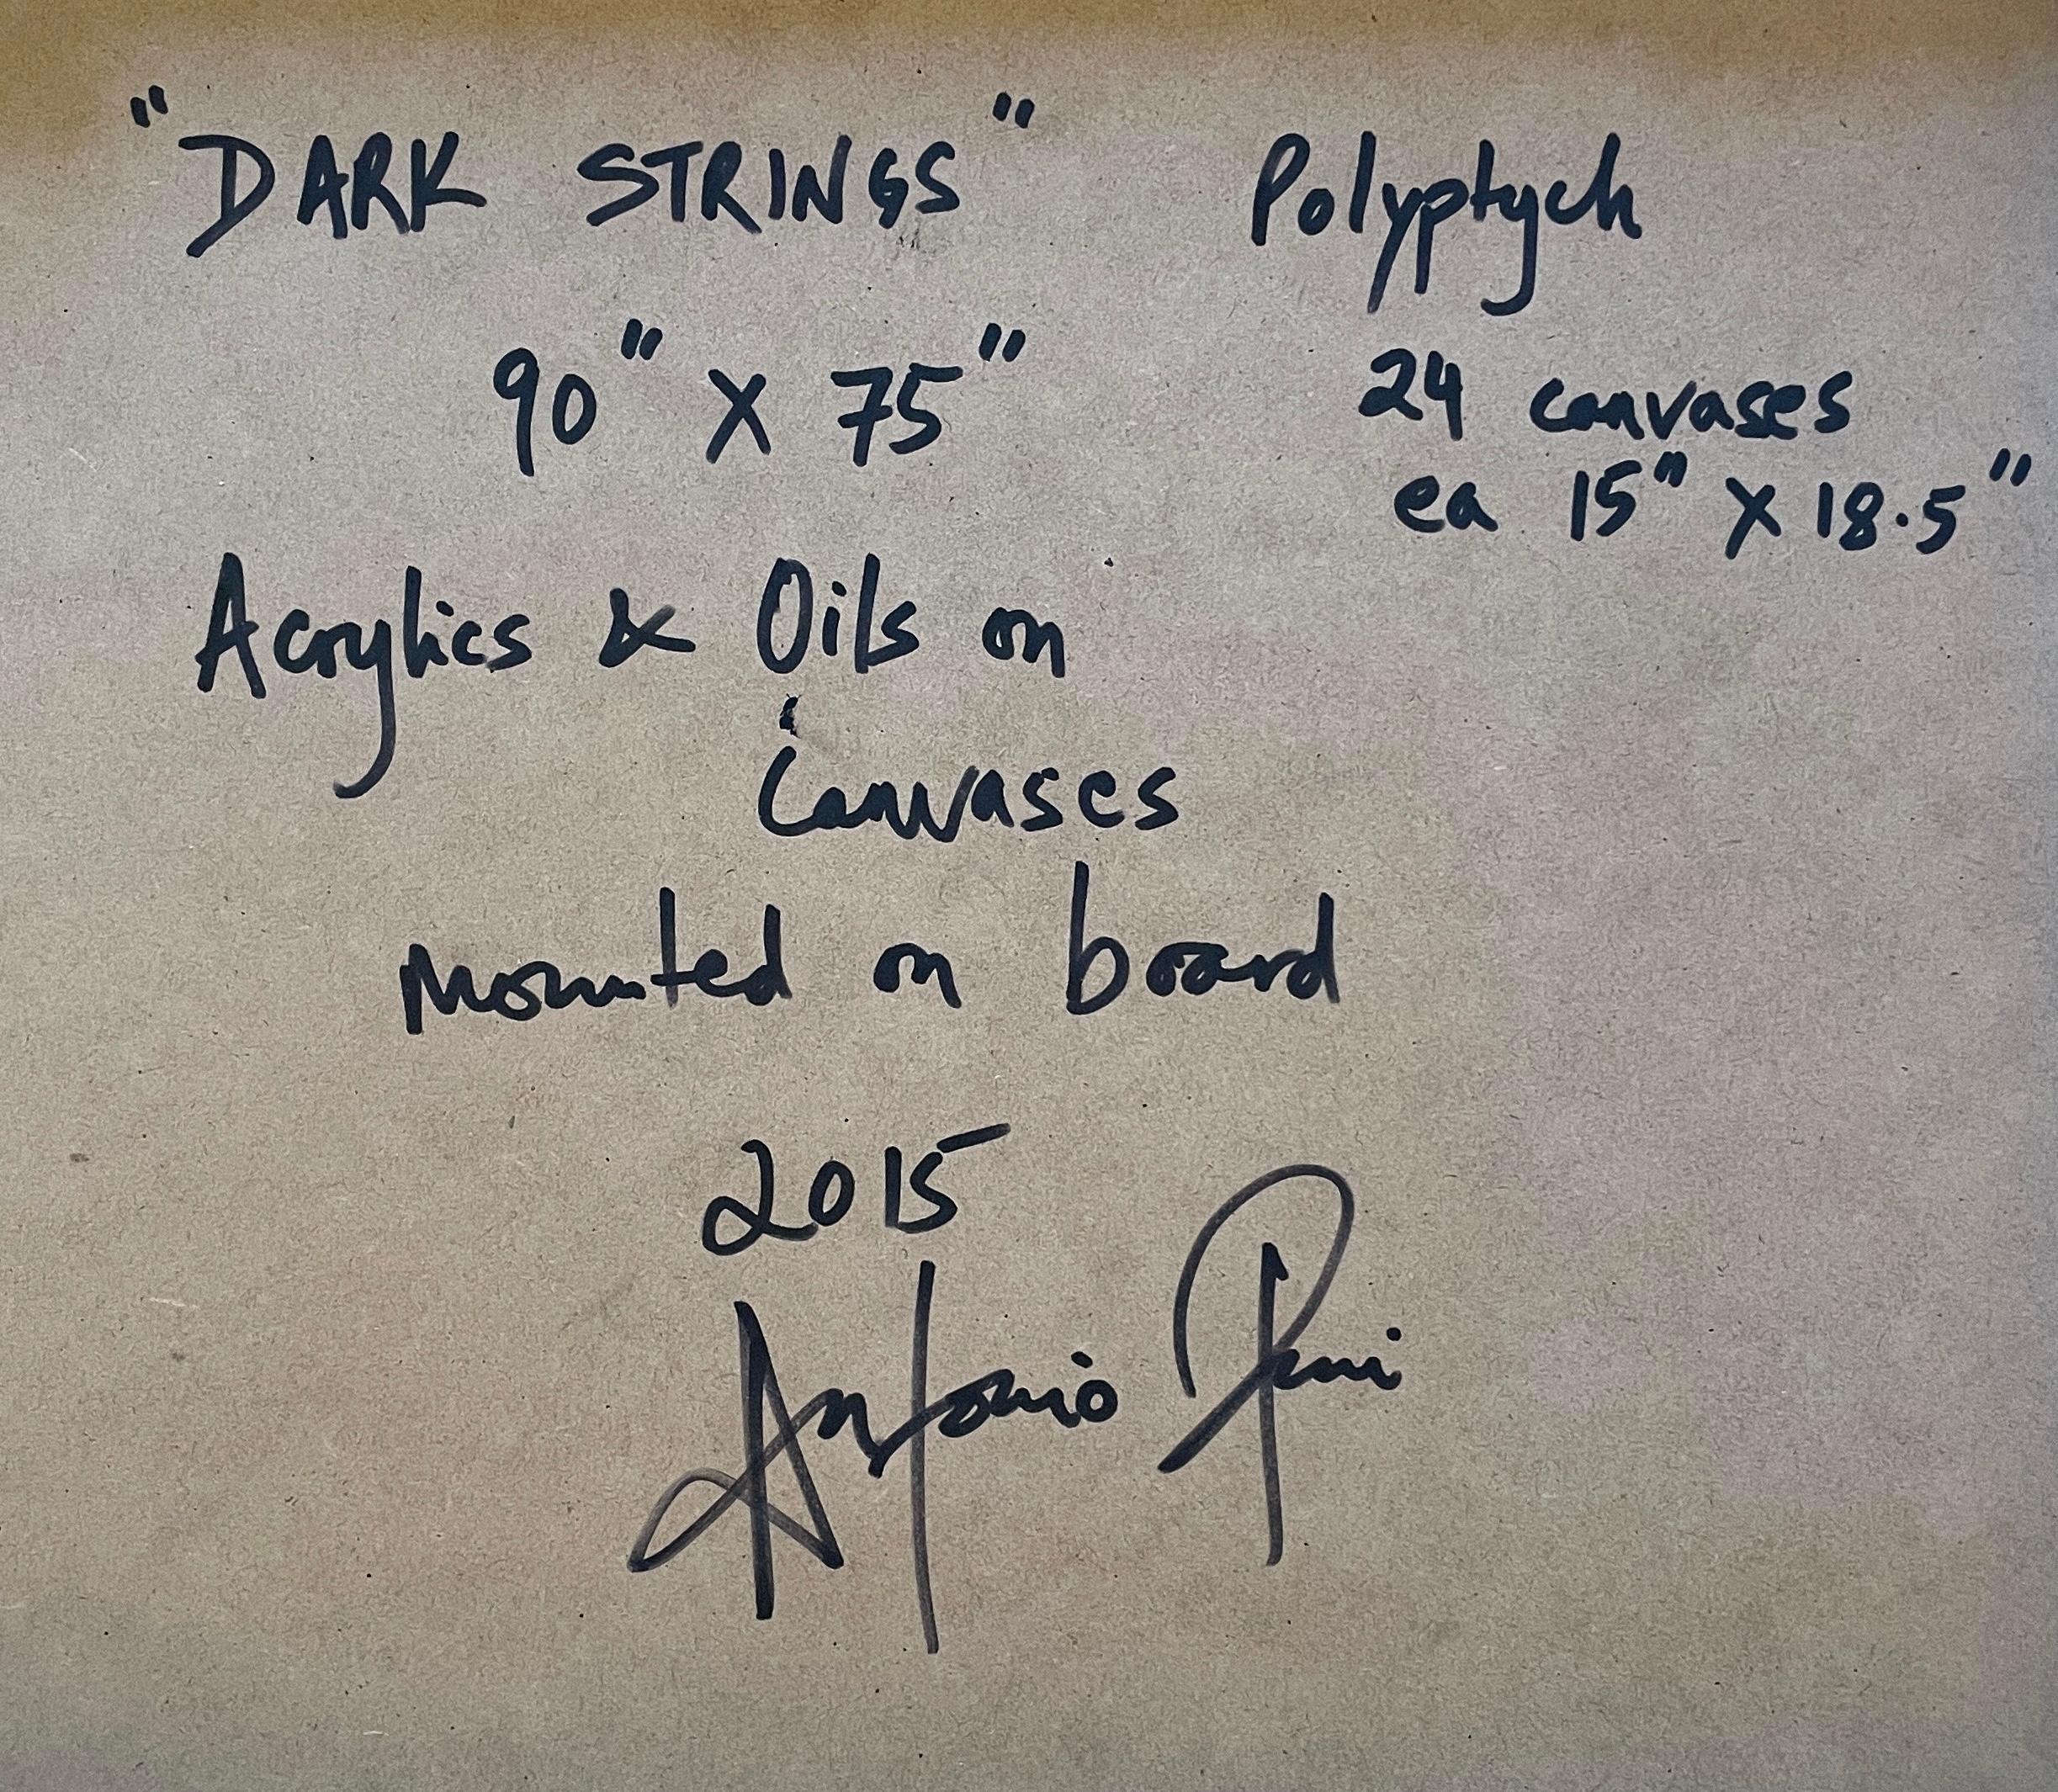 "DARK STRINGS"
90" X 75"
Polyptych
24 canvases
ea 15" X 18.5"
Acrylics & Oils on
Canvases
Mounted on board
2015
Antonio